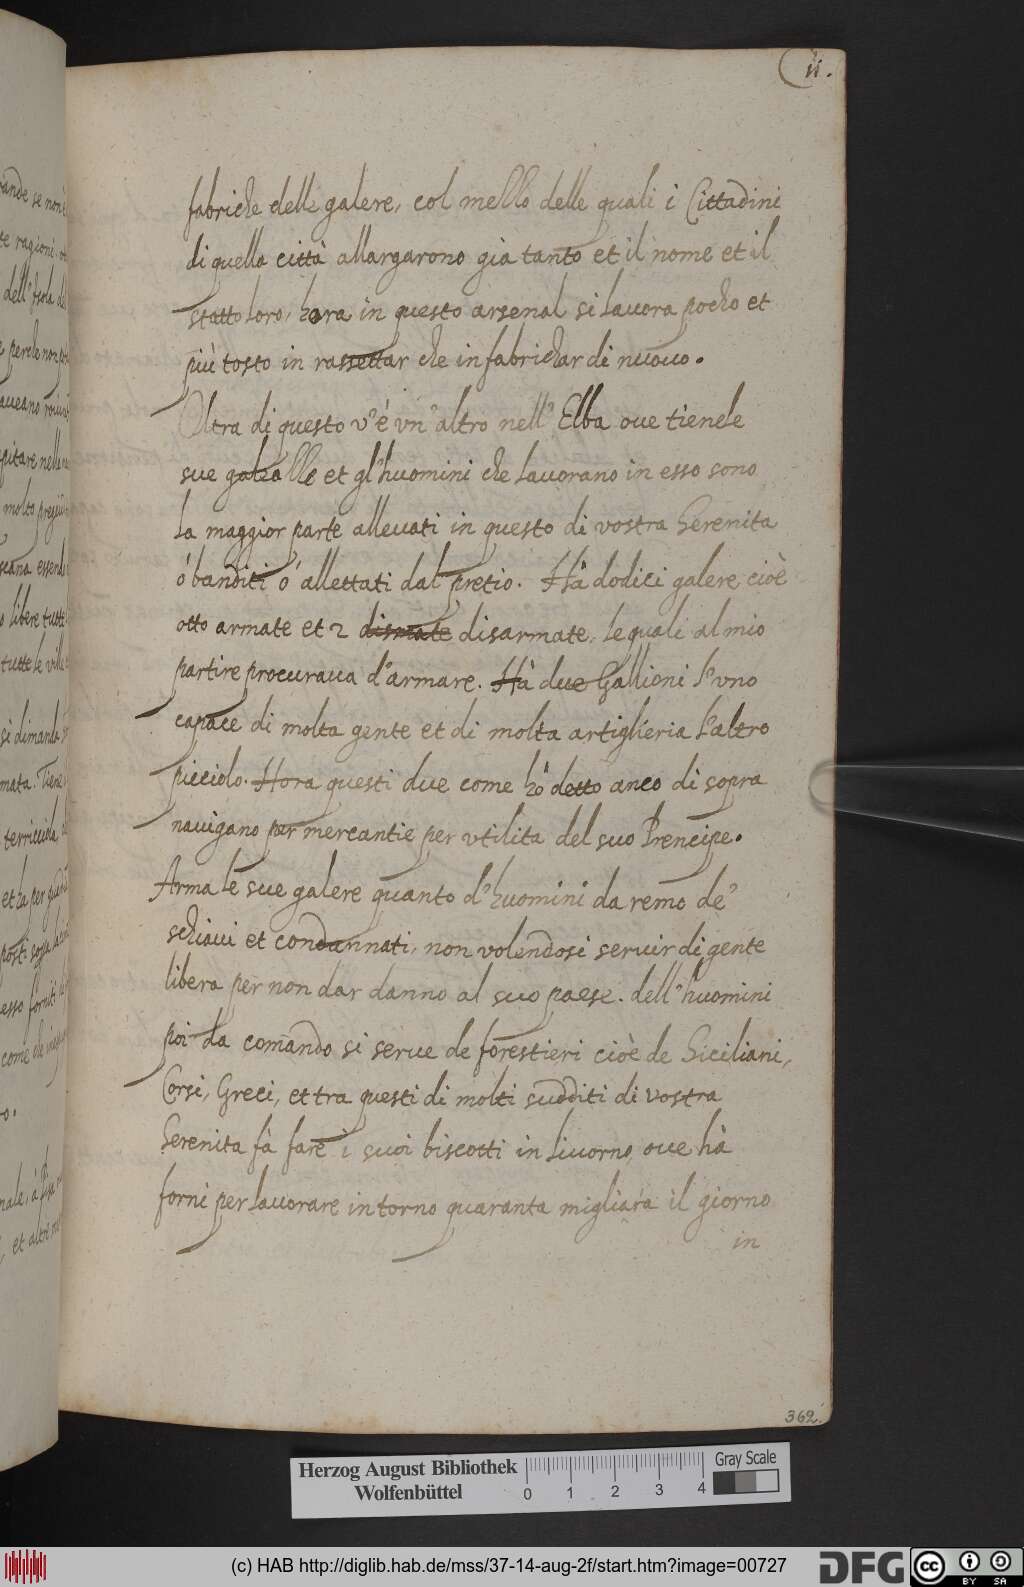 11.
fabriche delle galere, col mello delle quali i Cittadini
di quella città allargarono già tanto et il nome et il
statto loro, hora in questo arsenal si lauora pocho et
più tosto in rassettar che in fabrichar di nuouo.
Oltra di questo v'é vn' altro nell' Elba oue tiene le
sue galealle et gl'huomini che lauorano in esso sono
la maggior parte alleuati in questo di vostra Serenita
ó banditi ó allettati dal pretio. Hà dodici galere cioè
otto armate et 2 dismate disarmate, le quali al mio
partire procuraua d'armare. Hà due Gallioni l'vno
capace di molta gente et di molta artiglieria l'altro
picciolo. Hora questi due come hò detto anco di sopra
nauigano per mercantie per vtilita del suo Prencipe.
Arma le sue galere quanto d'huomini da remo de'
schiaui et condannati, non volendosi seruir di gente
libera per non dar danno al suo paese. dell'huomini
poi da comando si serue de forestieri cioè de Siciliani,
Corsi, Greci, et tra questi di molti sudditi di vostra
Serenita fà fare i suoi biscotti in liuorno oue hà
forni per lauorare intorno quaranta migliara il giorno
in
362
Herzog August Bibliothek
Wolfenbüttel
0 1 2 3 4
Gray Scale
(c) HAB http://diglib.hab.de/mss/37-14-aug-2f/start.htm?image=00727
DFG
cc BY SA